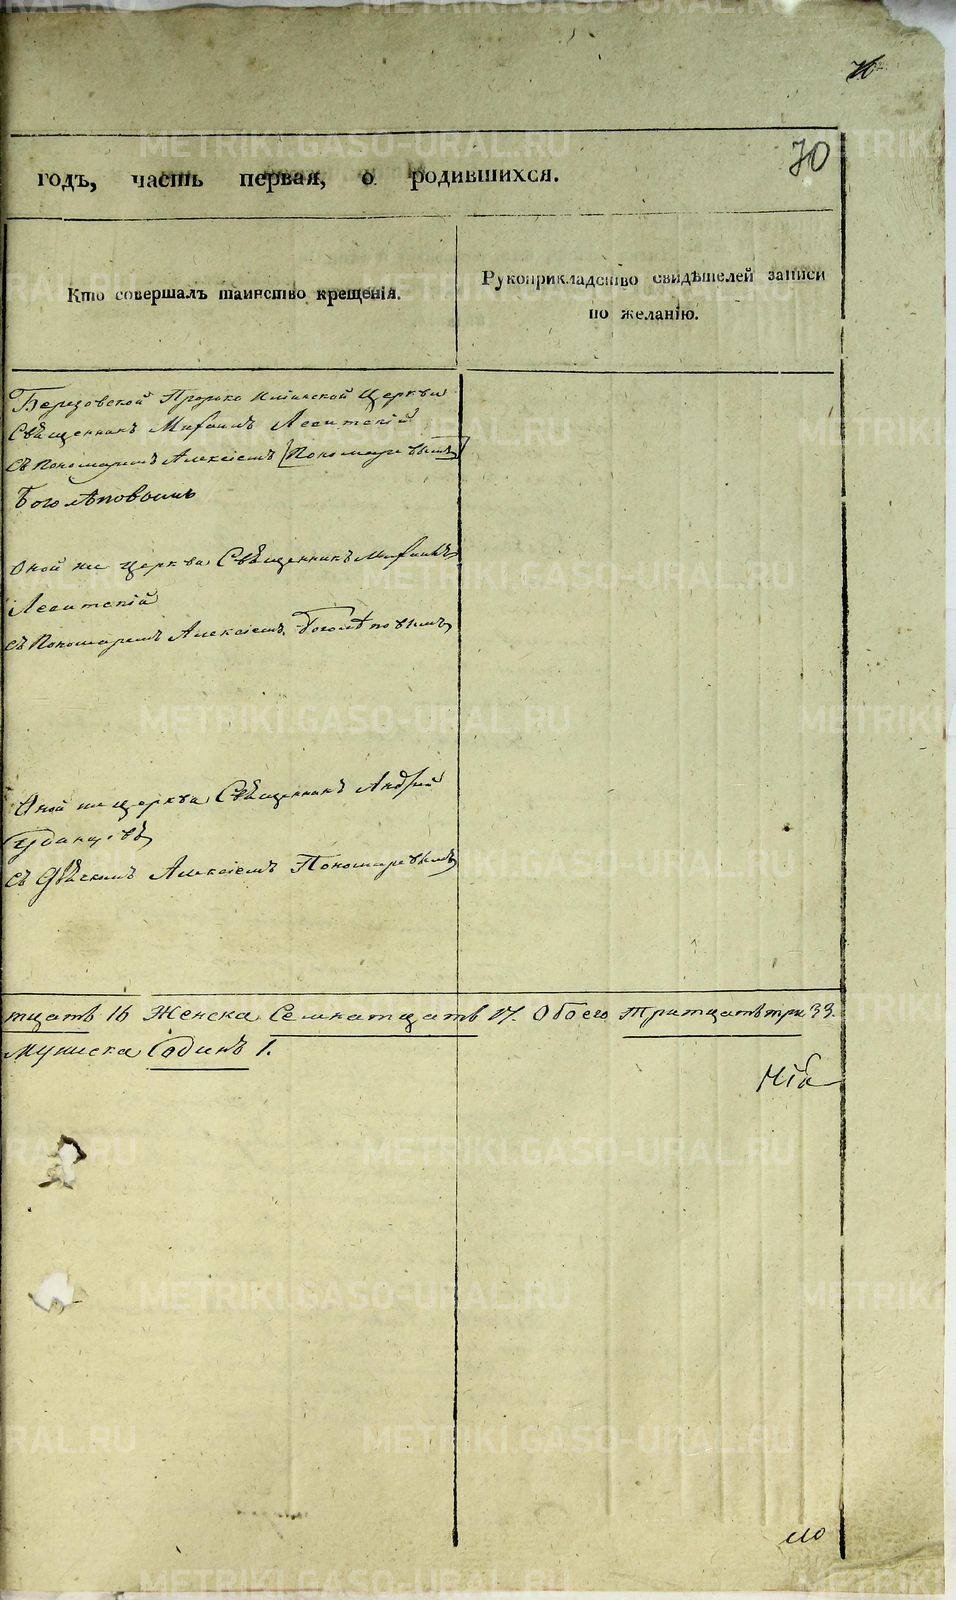 70
годъ, часть первая, о родившихся.
Кто совершалъ таинство крещенія.
Рукоприкладство свидѣтелей записи
по желанію.
Березовской Пророко Илiинской Церкви
Священникъ Михаилъ Левитскій
съ Пономаремъ Алексіемъ [Пономаревымъ]
Боголѣповымъ
Оной же церкви Священникъ Михаилъ
Левитскій
съ Пономаремъ Алексіемъ Боголѣповымъ
Оной же церкви Священникъ Андрей
съ Алексіемъ Пономаревымъ
тцать 16 Женска Семнатцать 17. Обоего Тритцать три 33.
Мужеска Одинъ 1.
METRIKI.GASO-URAL.RU